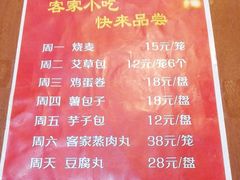 客家小吃
快來品尝
周一 烧麦 15元/笼
周二 艾草包 12元/笼6个
周三 鸡蛋卷 18元/盘
周四 薯包子 18元/盘
周五 芋子包 12元/盘
周六 客家蒸肉丸 38元/笼
周天 豆腐丸 28元/盘